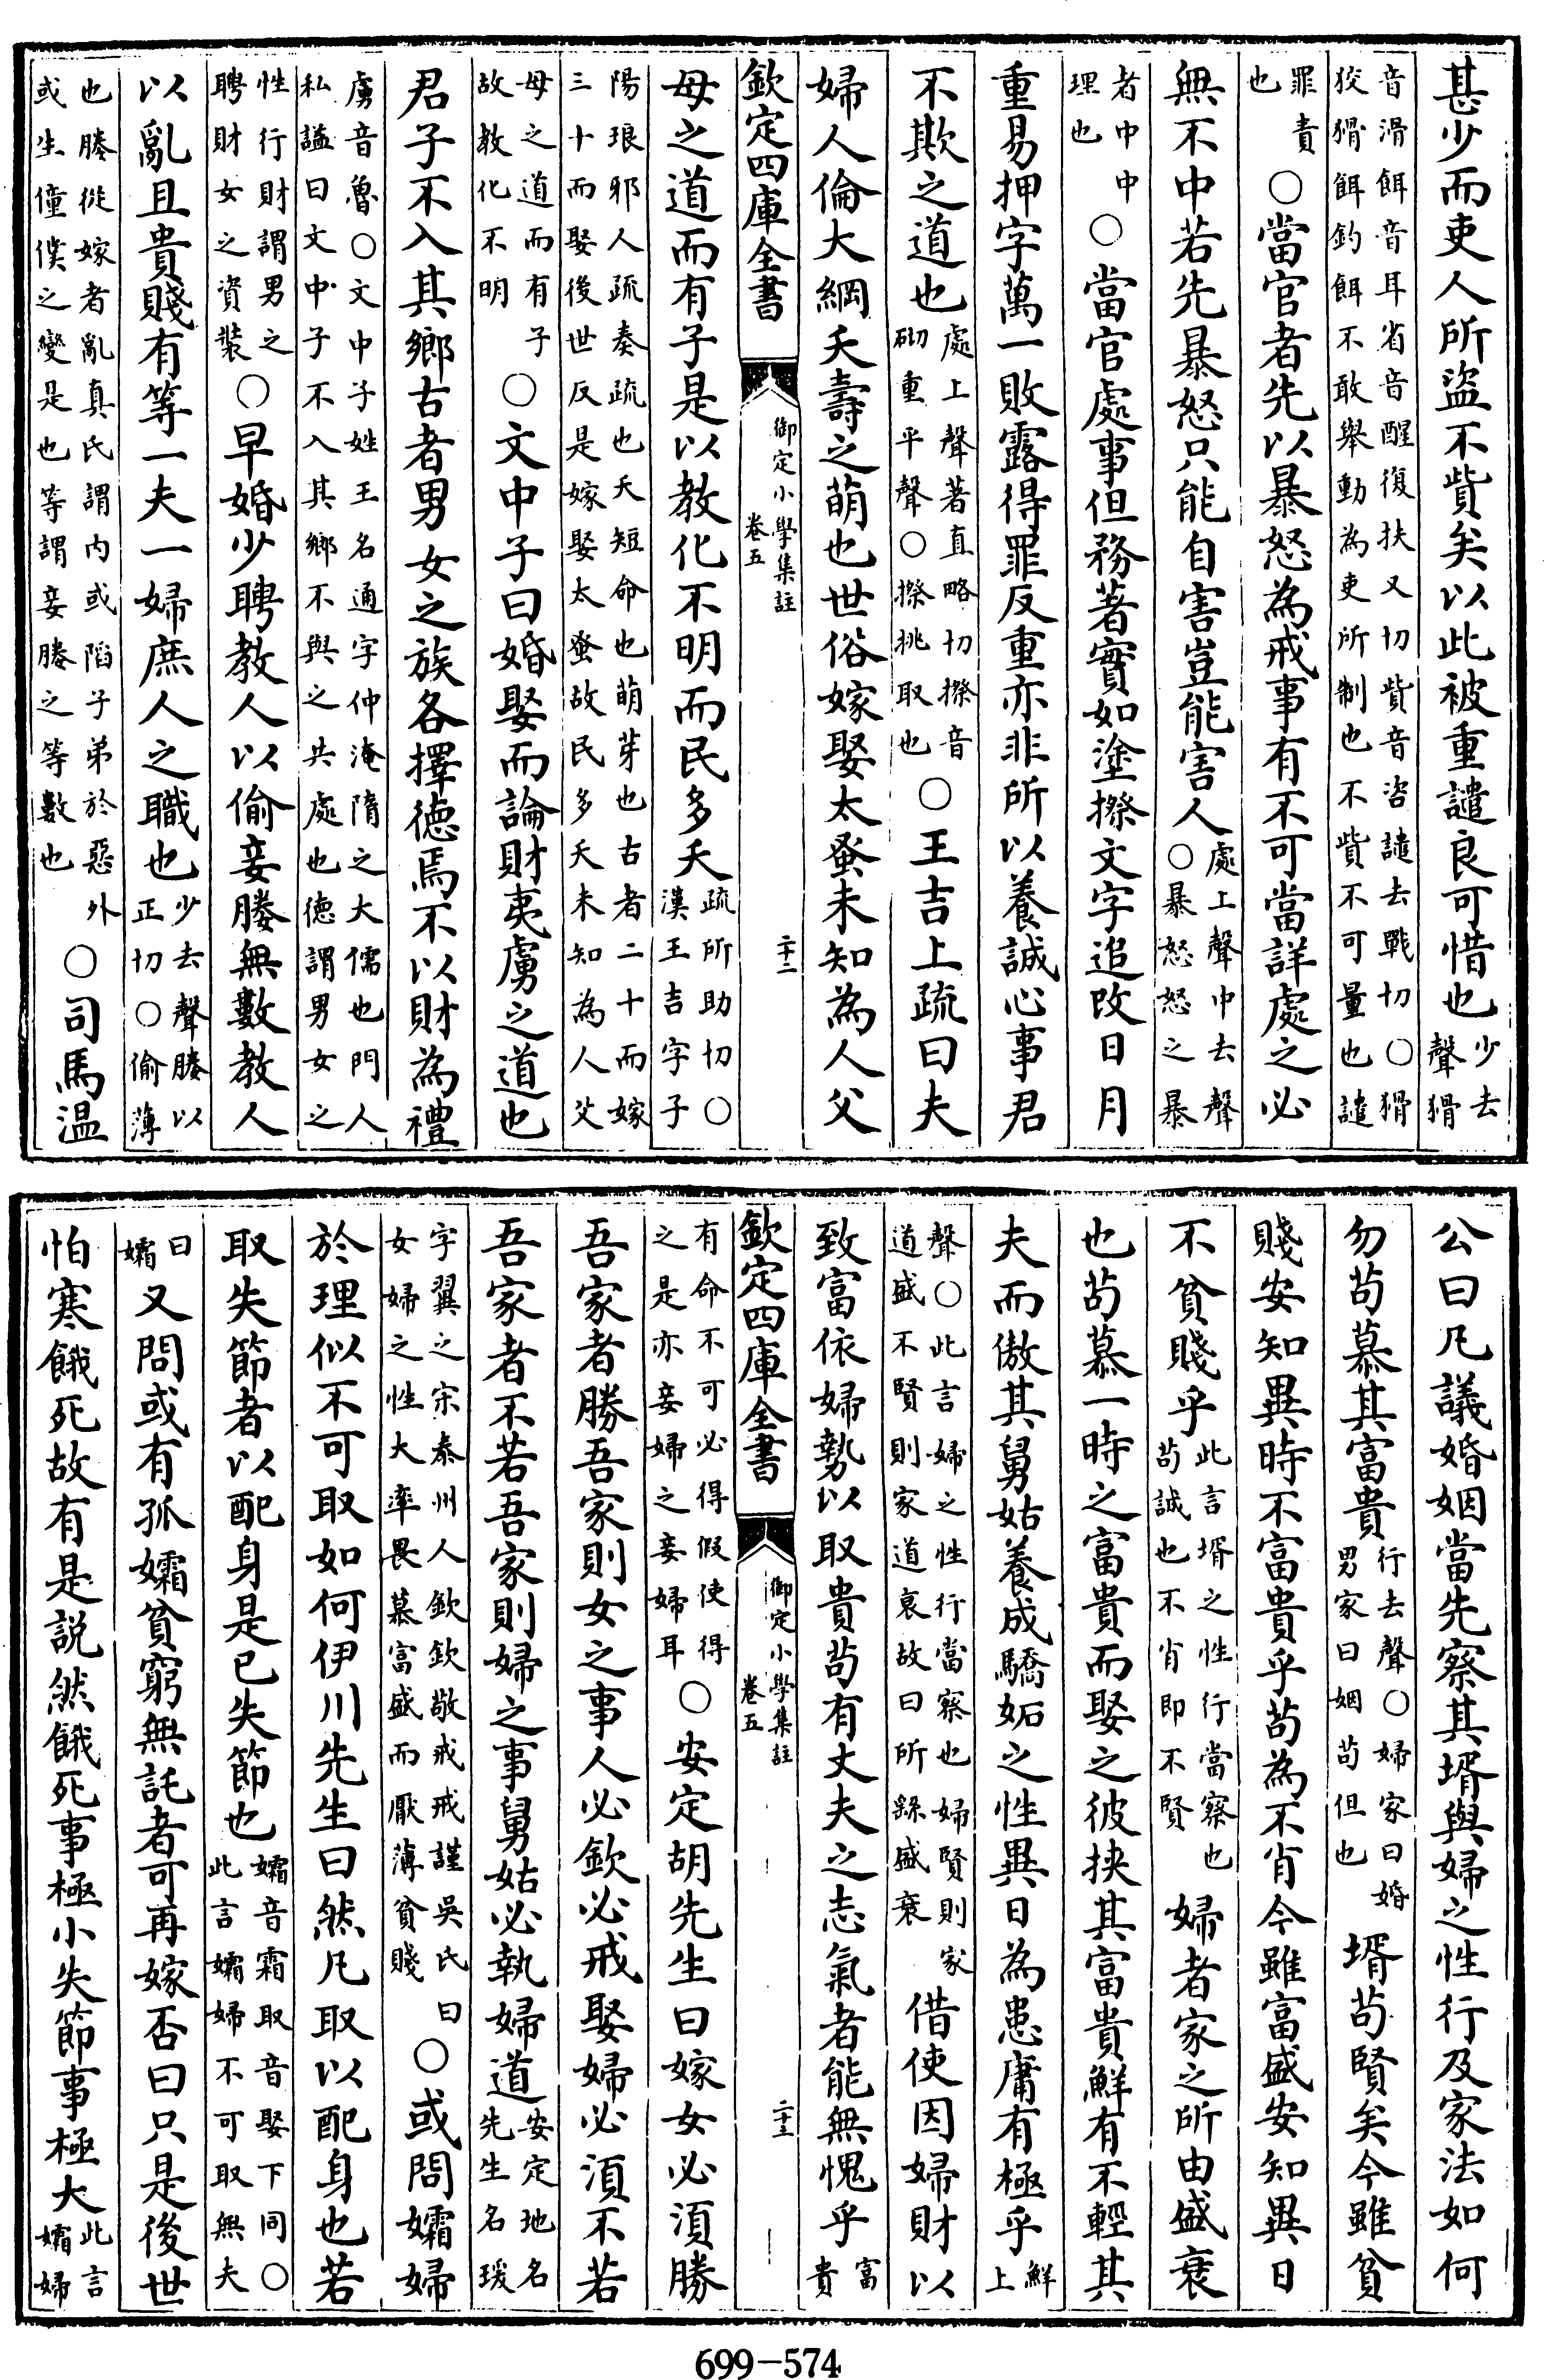 甚少而吏人所盗不貲矣以此被重譴良可惜也少去
聲猾
音滑餌音耳省音醒復扶又切貲音咨譴去戰切○猾
狡猾餌釣餌不敢舉動為吏所制也不貲不可量也譴
罪責
也○當官者先以暴怒為戒事有不可當詳處之必
無不中若先暴怒只能自害豈能害人處上聲中去聲
○暴怒怒之暴
者中中
理也○當官處事但務著實如塗擦文字追改日月
重易押字萬一敗露得罪反重亦非所以養誠心事君
不欺之道也處上聲著直略切擦音
砌重平聲○擦挑取也○王吉上疏曰夫
婦人倫大綱夭壽之萌也世俗嫁娶太蚤未知為人父
欽定四庫全書 御定小學集註 卷五 二十二
母之道而有子是以教化不明而民多夭疏所助切○
漢王吉字子
陽琅邪人疏奏疏也夭短命也萌芽也古者二十而嫁
三十而娶後世反是嫁娶太蚤故民多夭未知為人父
母之道而有子
故教化不明○文中子曰婚娶而論財夷虜之道也
君子不入其鄉古者男女之族各擇徳焉不以財為禮
虜音魯○文中子姓王名通字仲淹隋之大儒也門人
私諡曰文中子不入其鄉不與之共處也徳謂男女之
性行財謂男之
聘財女之資裝○早婚少聘教人以偷妾媵無數教人
以亂且貴賤有等一夫一婦庶人之職也少去聲媵以
正切○偷薄
也媵從嫁者亂真氏謂内或䧟子弟於惡外
或生僮僕之變是也等謂妾媵之等數也○司馬温
公曰凡議婚姻當先察其壻與婦之性行及家法如何
勿茍慕其富貴行去聲○婦家曰婚
男家曰姻茍但也壻茍賢矣今雖貧
賤安知異時不富貴乎茍為不肖今雖富盛安知異日
不貧賤乎此言壻之性行當察也
茍誠也不肖即不賢婦者家之所由盛衰
也茍慕一時之富貴而娶之彼挾其富貴鮮有不輕其
夫而傲其舅姑養成驕妬之性異日為患庸有極乎鮮
上
聲○此言婦之性行當察也婦賢則家
道盛不賢則家道衰故曰所繇盛衰借使因婦財以
致富依婦勢以取貴茍有丈夫之志氣者能無愧乎富
貴
欽定四庫全書 御定小學集註 卷五 二十三
有命不可必得假使得
之是亦妾婦之妾婦耳○安定胡先生曰嫁女必須勝
吾家者勝吾家則女之事人必欽必戒娶婦必須不若
吾家者不若吾家則婦之事舅姑必執婦道安定地名
先生名瑗
字翼之宋泰州人欽欽敬戒戒謹吳氏曰
女婦之性大率畏慕富盛而厭薄貧賤○或問孀婦
於理似不可取如何伊川先生曰然凡取以配身也若
取失節者以配身是已失節也孀音霜取音娶下同○
此言孀婦不可取無夫
曰
孀又問或有孤孀貧窮無託者可再嫁否曰只是後世
怕寒餓死故有是説然餓死事極小失節事極大此言
孀婦
699-574